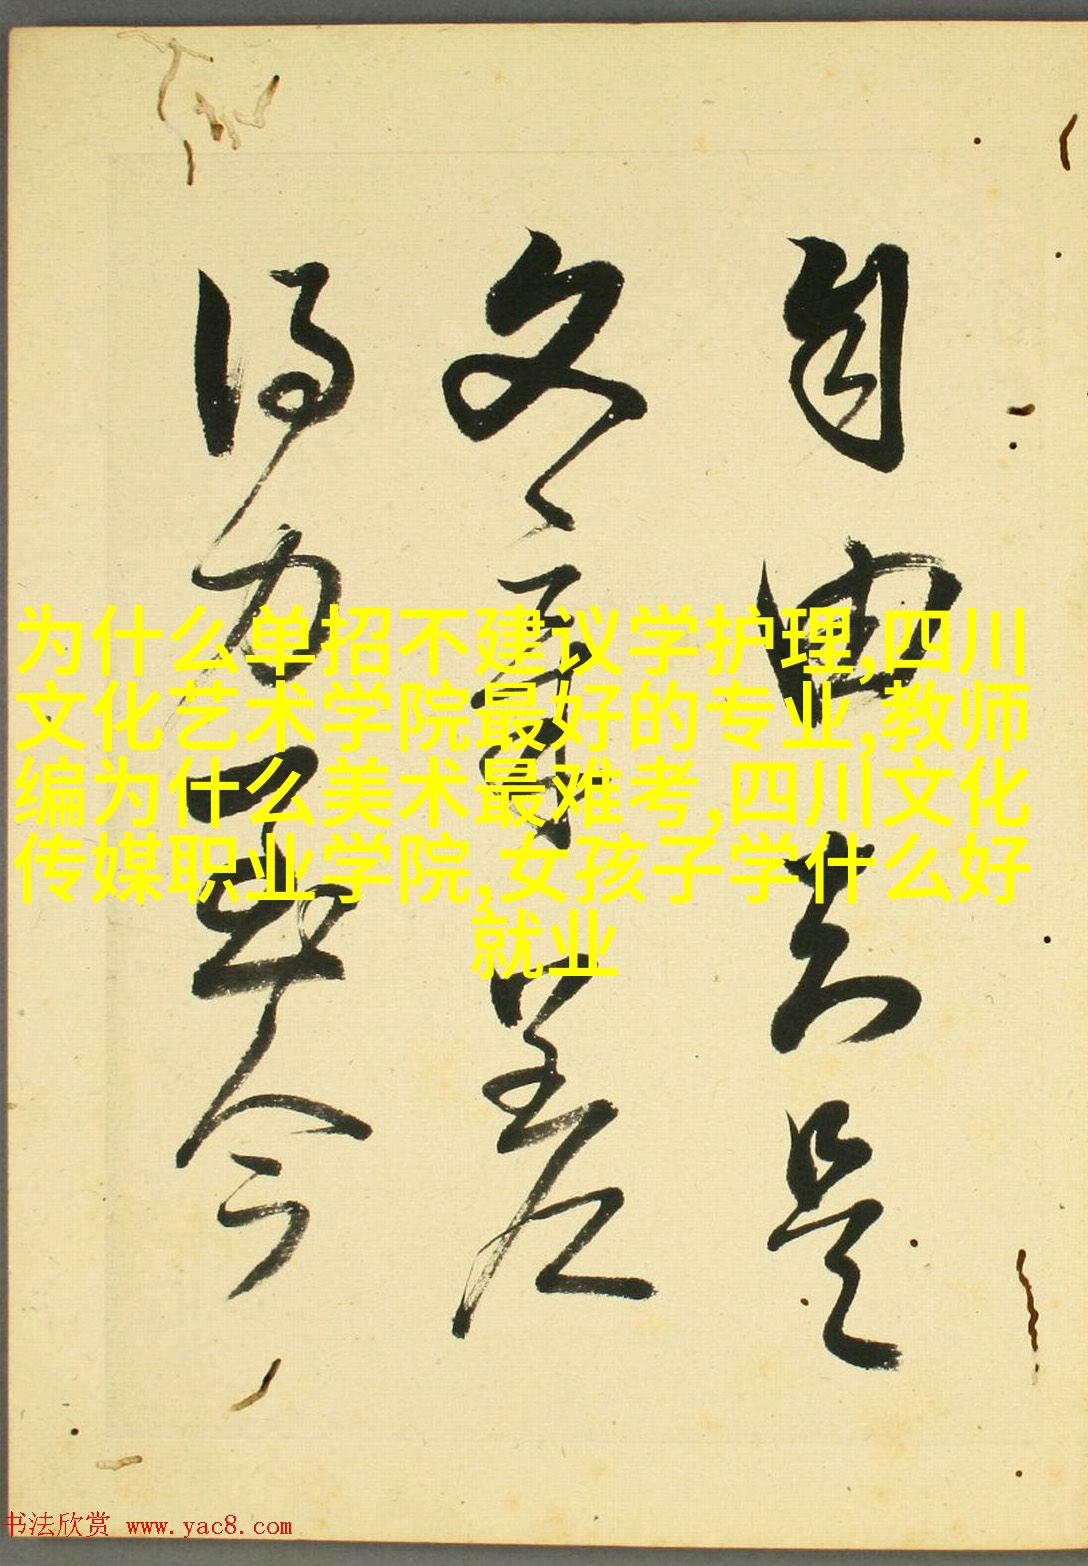 自由是
文章差
得力今
为什么单招不建议学护理,四川
文化艺术学院最好的专业,教师
编为什么美术最难考,四川文化
传媒职业学院,女孩子学什么好
就业
书法欣赏 www.yac8.com